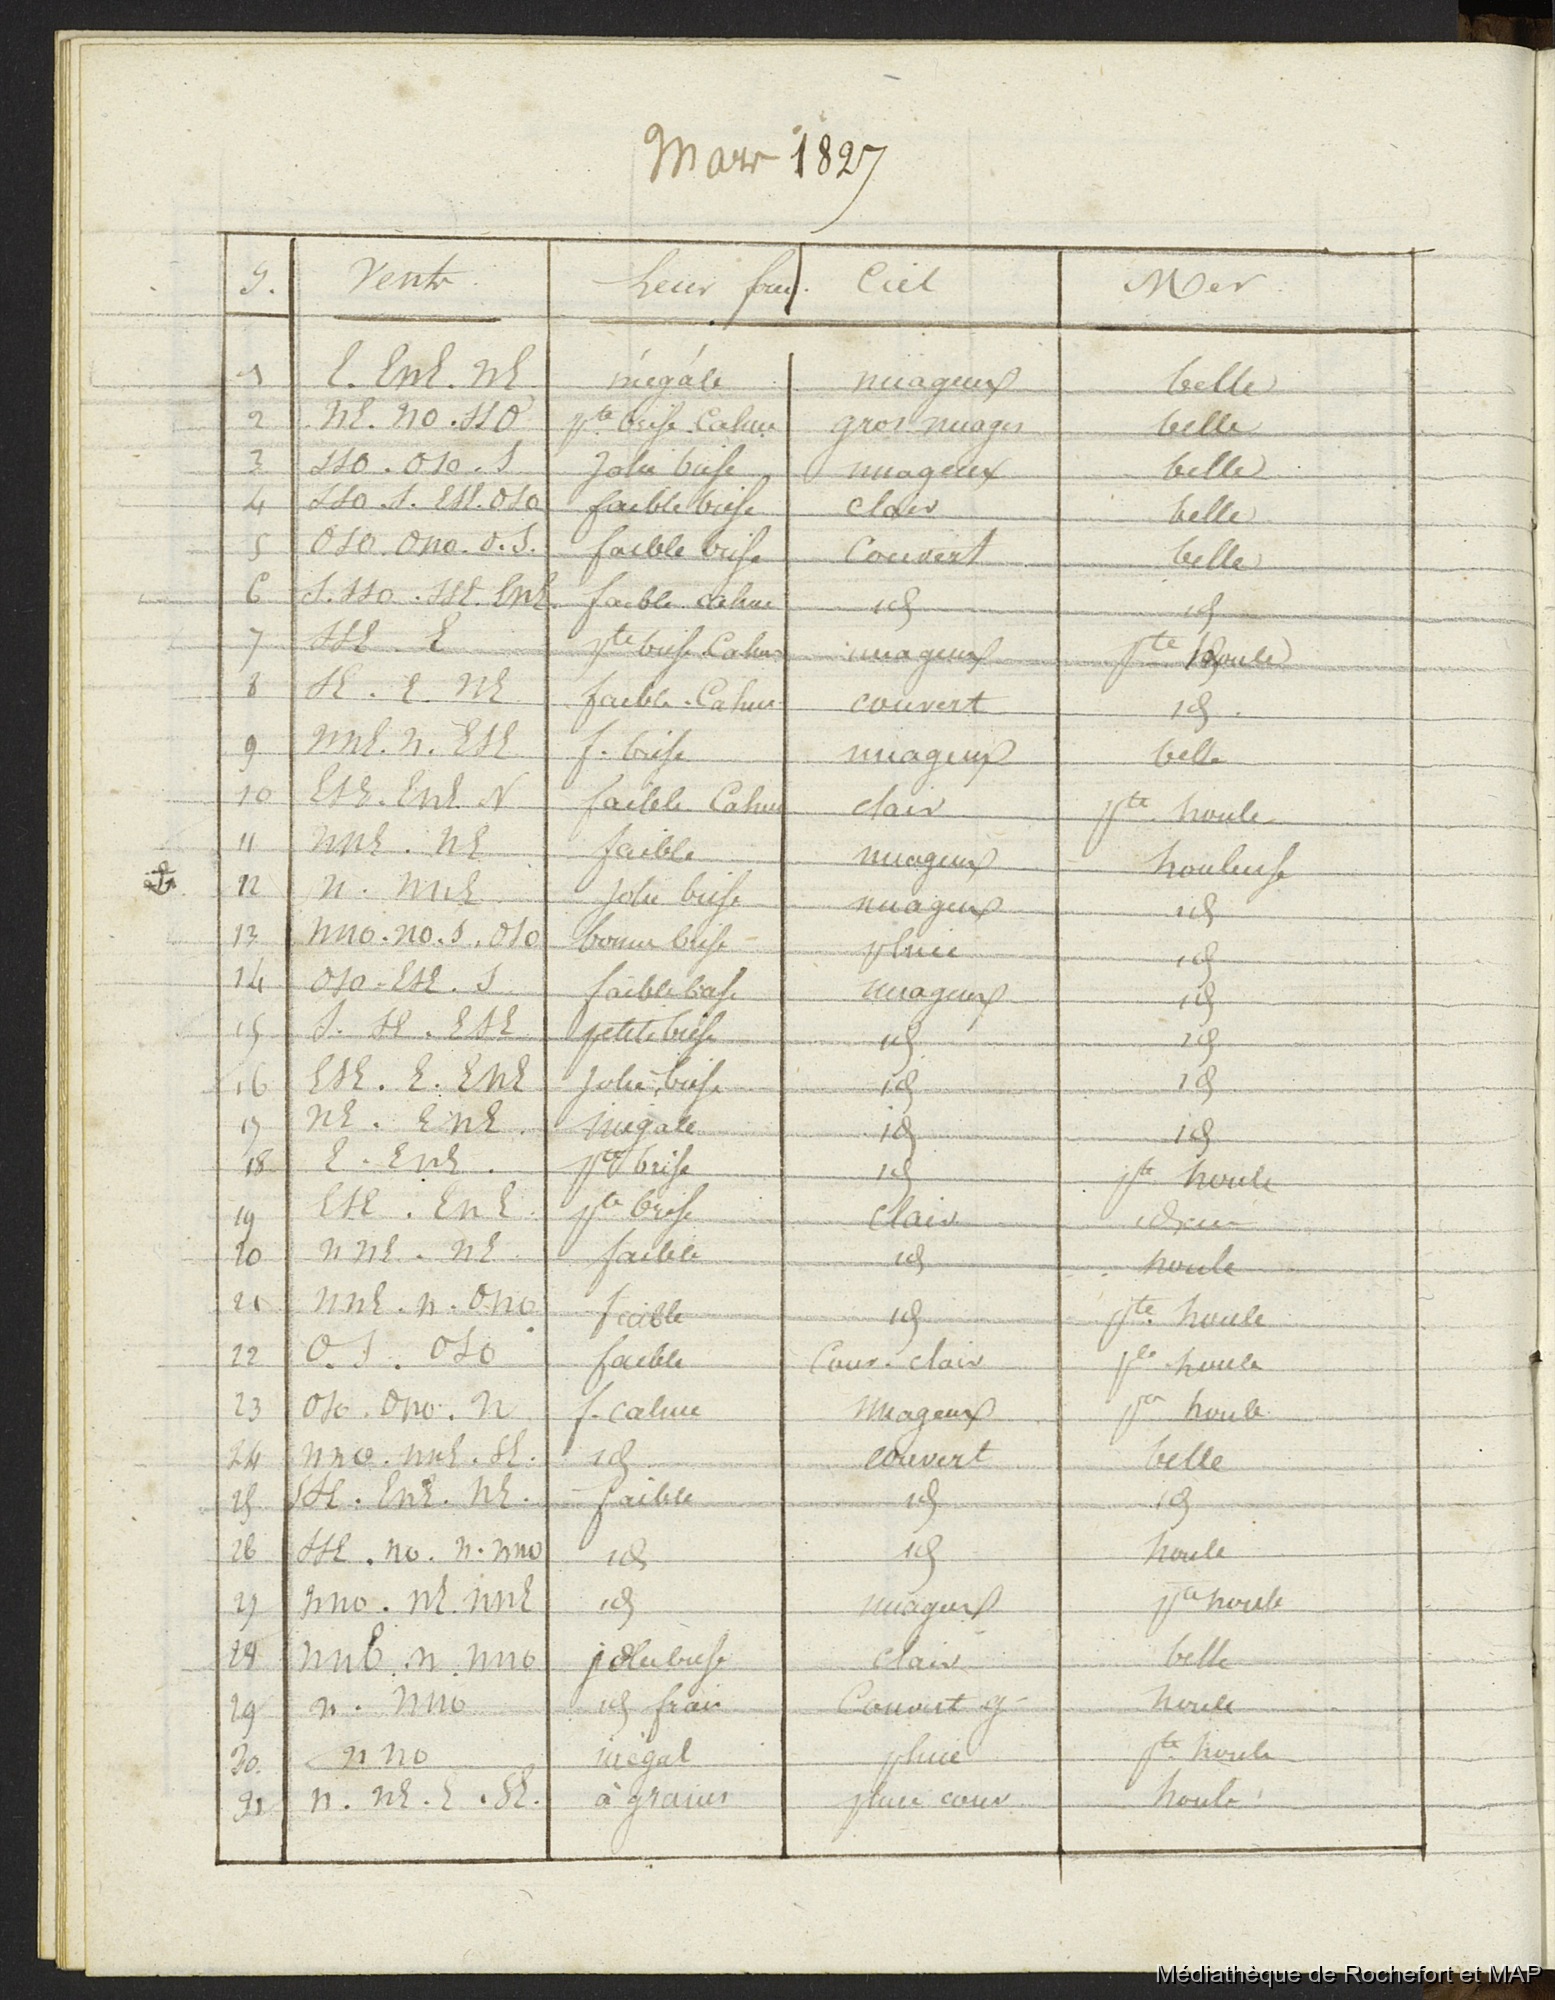 Mars 1827
J. Vents Leur for. Ciel Mer
1 E. ENE. NE inégale nuageux belle
2 NE. NO. SSO pte brise. Calme gros nuages belle
3 SSO. OSO. S jolie brise nuageux belle
4 SSO. S. ESE. OSO faible brise clair belle
5 OSO. ONO. O. S. faible brise Couvert belle
6 S. SSO. SSE. ENE. faible calme id id
7 SSE. E pte brise. Calme nuageux pte houle
8 SE. E. NE faible. Calme couvert id.
9 NNE. N. ESE f. brise nuageux belle
10 ESE. ENE N faible Calme clair pte houle
11 NNE. NE faible nuageux houleuse
12 N. NNE jolie brise nuageux id
13 NNO. NO. S. OSO bonne brise pluie id
14 OSO. ESE. S faible brise nuageux id
15 S. SE. ESE petite brise id id
16 ESE. E. ENE jolie brise id id
17 NE. ENE. inégale id id
18 E. ENE. pte brise id pte houle
19 ESE. ENE. pte brise clair
20 NNE. NE faible id houle
21 NNE. N. ONO faible id pte houle
22 O. S. OSO faible Couv. clair pte houle
23 OSO. ONO. N f. calme Nuageux pte houle
24 NNO. NNE. SE. id couvert belle
25 SSE. ENE. NE. faible id id
26 SSE. NO. N. NNO id id houle
27 NNO. NE. NNE id nuageux pte houle
28 NNE. N. NNO jolie brise clair belle
29 N. NNO id frais Couvert g houle
30. NNO inégal pluie pte houle
31 N. NE. E. SE. à grains pluie couv. houle
Médiathèque de Rochefort et MAP